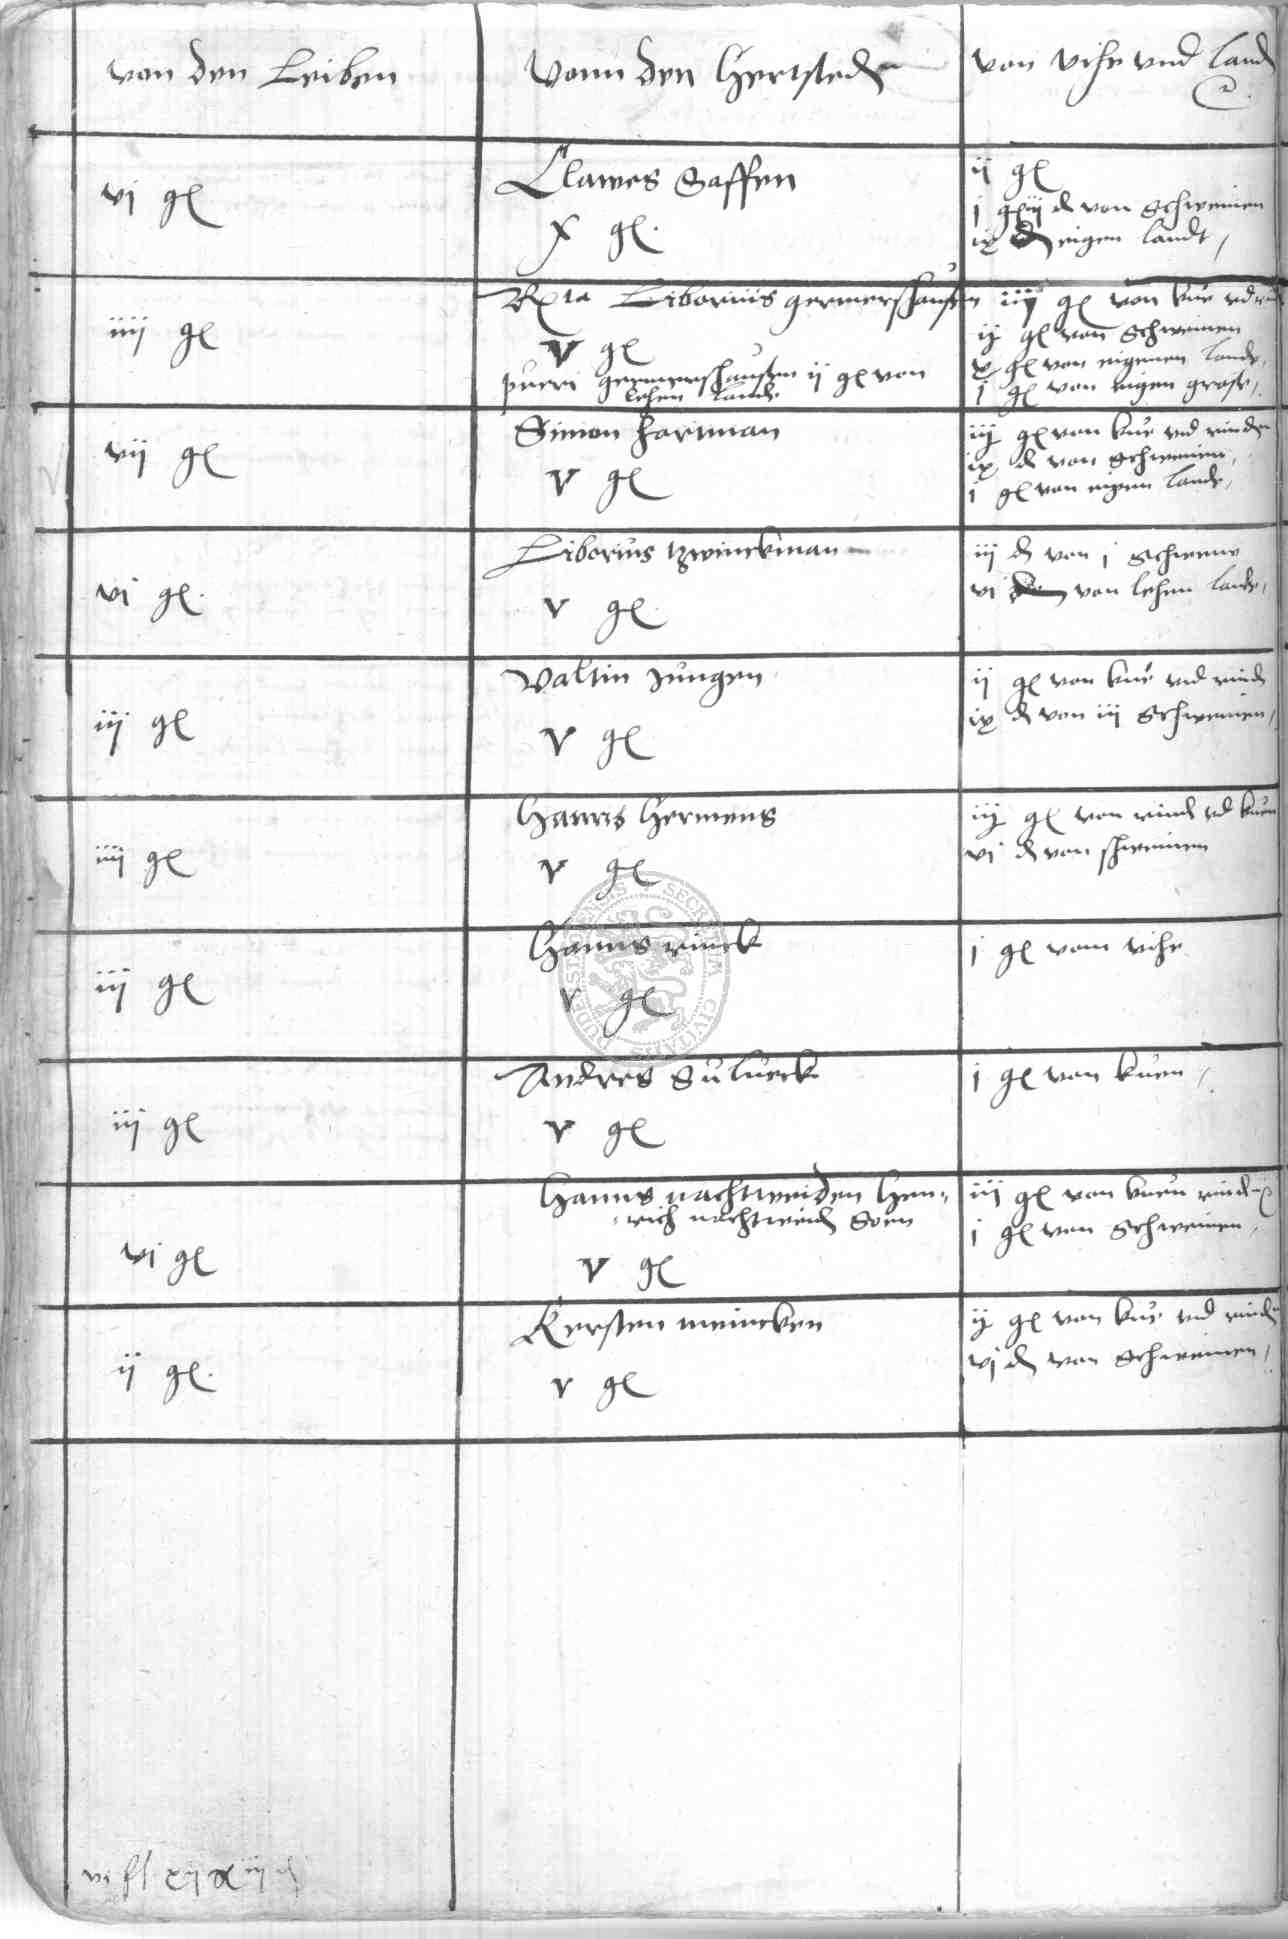 von den Leiben
Vonn den Hertsteden
von vihe vnd land
vi gl
Clawes Saffen
x gl.
ij gl
j gl iij d von Schweinen
ix d eigen landt
iiij gl
Rta Liborius germershausen
v gl
pueri germershausen ij gl von
lehen lande
iij gl von kue vnd
ij gl von Schweinen
x gl von eigenen lande
j gl von eigen grase
vij gl
Simon hartman
v gl
iij gl von kue vnd rinder
ix d von Schweinen
i gl von eigen lande
vi gl.
Liborius tzwinckman
v gl.
iij d von j Schweine
vi von lehen lande
iij gl
Valtin Jungen
v gl
ij gl von kue vnd rind
ix d von iij Schweinen
iij gl
Hanns Hermens
v gl
iij gl von rind vnd kuen
vi d von schweinen
iij gl
Hanns rinck
v gl
j gl vom vihe
SECRETUM CIVITATIS
iij gl
Andres Sulueck
v gl
j gl von kuen
vi gl
Hanns nachtweiden Hen-
rich nachtweid Soen
v gl
iij gl von kuen rinder
j gl von Schweinen
ij gl.
Kersten meincken
v gl
ij gl von kue vnd rinder
vi d von Schweinen
vi fl xij